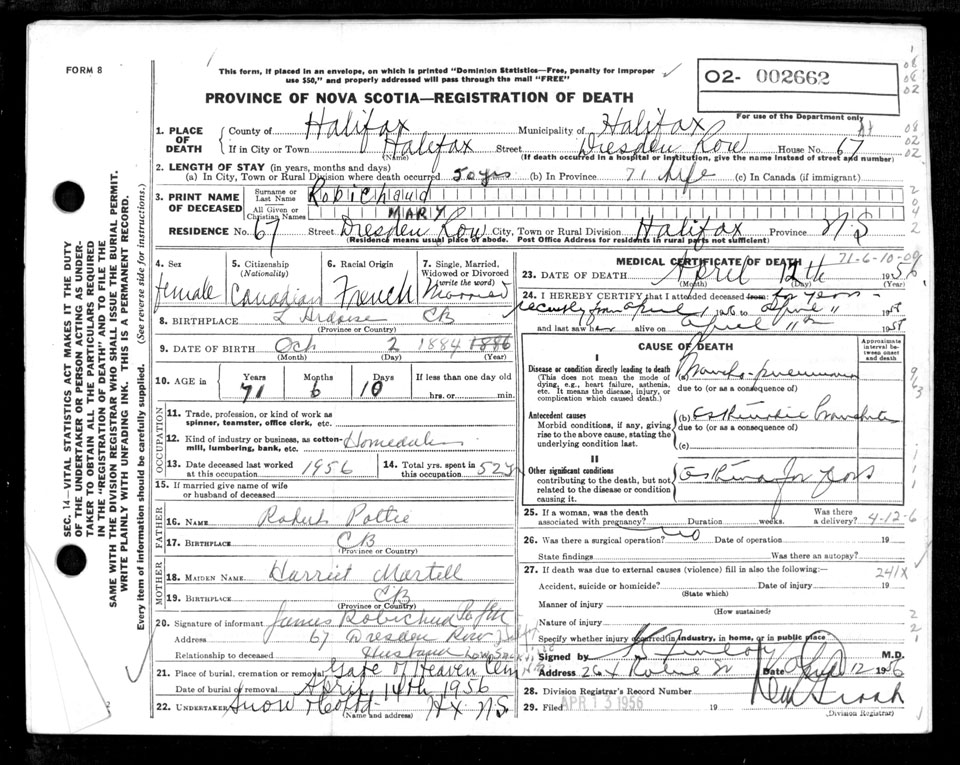 FORM 8
This form, if placed in an envelope, on which is printed "Dominion Statistics—Free, penalty for improper
use $50," and properly addressed will pass through the mail "FREE"
O2- 002662
For use of the Department only
PROVINCE OF NOVA SCOTIA—REGISTRATION OF DEATH
1. PLACE OF DEATH { County of Halifax Municipality of Halifax
If in City or Town Halifax Street Dresden Row House No. 67
(Name) (If death occurred in a hospital or institution, give the name instead of street and number)
2. LENGTH OF STAY (in years, months and days)
(a) In City, Town or Rural Division where death occurred 50 yrs (b) In Province 71 Life (c) In Canada (if immigrant)
3. PRINT NAME OF DECEASED { Surname or Last Name Robichaud
All Given or Christian Names MARY
RESIDENCE No. 67 Street Dresden Row City, Town or Rural Division Halifax Province N.S
(Residence means usual place of abode. Post Office Address for residents in rural parts not sufficient)
4. Sex female
5. Citizenship (Nationality) Canadian
6. Racial Origin French
7. Single, Married, Widowed or Divorced (write the word) Married
8. BIRTHPLACE L'Ardoise CB
(Province or Country)
9. DATE OF BIRTH Oct 2 1884 1886
(Month) (Day) (Year)
10. AGE in Years 71 Months 6 Days 10 If less than one day old
hrs. or min.
OCCUPATION
11. Trade, profession, or kind of work as spinner, teamster, office clerk, etc.
12. Kind of industry or business, as cotton-mill, lumbering, bank, etc. Homeduties
13. Date deceased last worked at this occupation 1956
14. Total yrs. spent in this occupation 52 y
15. If married give name of wife or husband of deceased
FATHER
16. NAME Robert Pottie
17. BIRTHPLACE CB
(Province or Country)
MOTHER
18. MAIDEN NAME Harriet Martell
19. BIRTHPLACE CB
(Province or Country)
20. Signature of informant James Robichud
Address 67 Dresden Row Halifax
Relationship to deceased Husband
21. Place of burial, cremation or removal Gate of Heaven Cem
Date of burial or removal April 14th 1956
22. UNDERTAKER Snow Hx N.S
(Name and address)
MEDICAL CERTIFICATE OF DEATH
71-6-10-09
23. DATE OF DEATH April 12th 1956
(Month) (Day) (Year)
24. I HEREBY CERTIFY that I attended deceased from: for years -
recently from April 1 1956 to April 11 195
and last saw her alive on April 11th 195
CAUSE OF DEATH
Approximate interval between onset and death
I
Disease or condition directly leading to death
(This does not mean the mode of dying, e.g., heart failure, asthenia, etc. It means the disease, injury, or complication which caused death.)
(a) Broncho-pneumonia
due to (or as a consequence of)
Antecedent causes
Morbid conditions, if any, giving rise to the above cause, stating the underlying condition last.
(b) Asthmatic Bronchitis
due to (or as a consequence of)
(c)
II
Other significant conditions
contributing to the death, but not related to the disease or condition causing it.
Asthma for years
25. If a woman, was the death associated with pregnancy? Duration weeks. Was there a delivery? 4-12-6
26. Was there a surgical operation? no Date of operation 19
State findings Was there an autopsy?
27. If death was due to external causes (violence) fill in also the following:— 241X
Accident, suicide or homicide? Date of injury 19
(State which)
Manner of injury
(How sustained)
Nature of injury
Specify whether injury occurred in industry, in home, or in public place
Signed by M.D.
Address Date 12 1956
28. Division Registrar's Record Number
29. Filed APR 13 1956 19
(Division Registrar)
SEC. 14—VITAL STATISTICS ACT MAKES IT THE DUTY
OF THE UNDERTAKER OR PERSON ACTING AS UNDER-
TAKER TO OBTAIN ALL THE PARTICULARS REQUIRED
IN THE "REGISTRATION OF DEATH" AND TO FILE THE
SAME WITH THE DIVISION REGISTRAR WHO SHALL ISSUE THE BURIAL PERMIT.
WRITE PLAINLY WITH UNFADING INK. THIS IS A PERMANENT RECORD.
Every item of information should be carefully supplied. (See reverse side for instructions.)